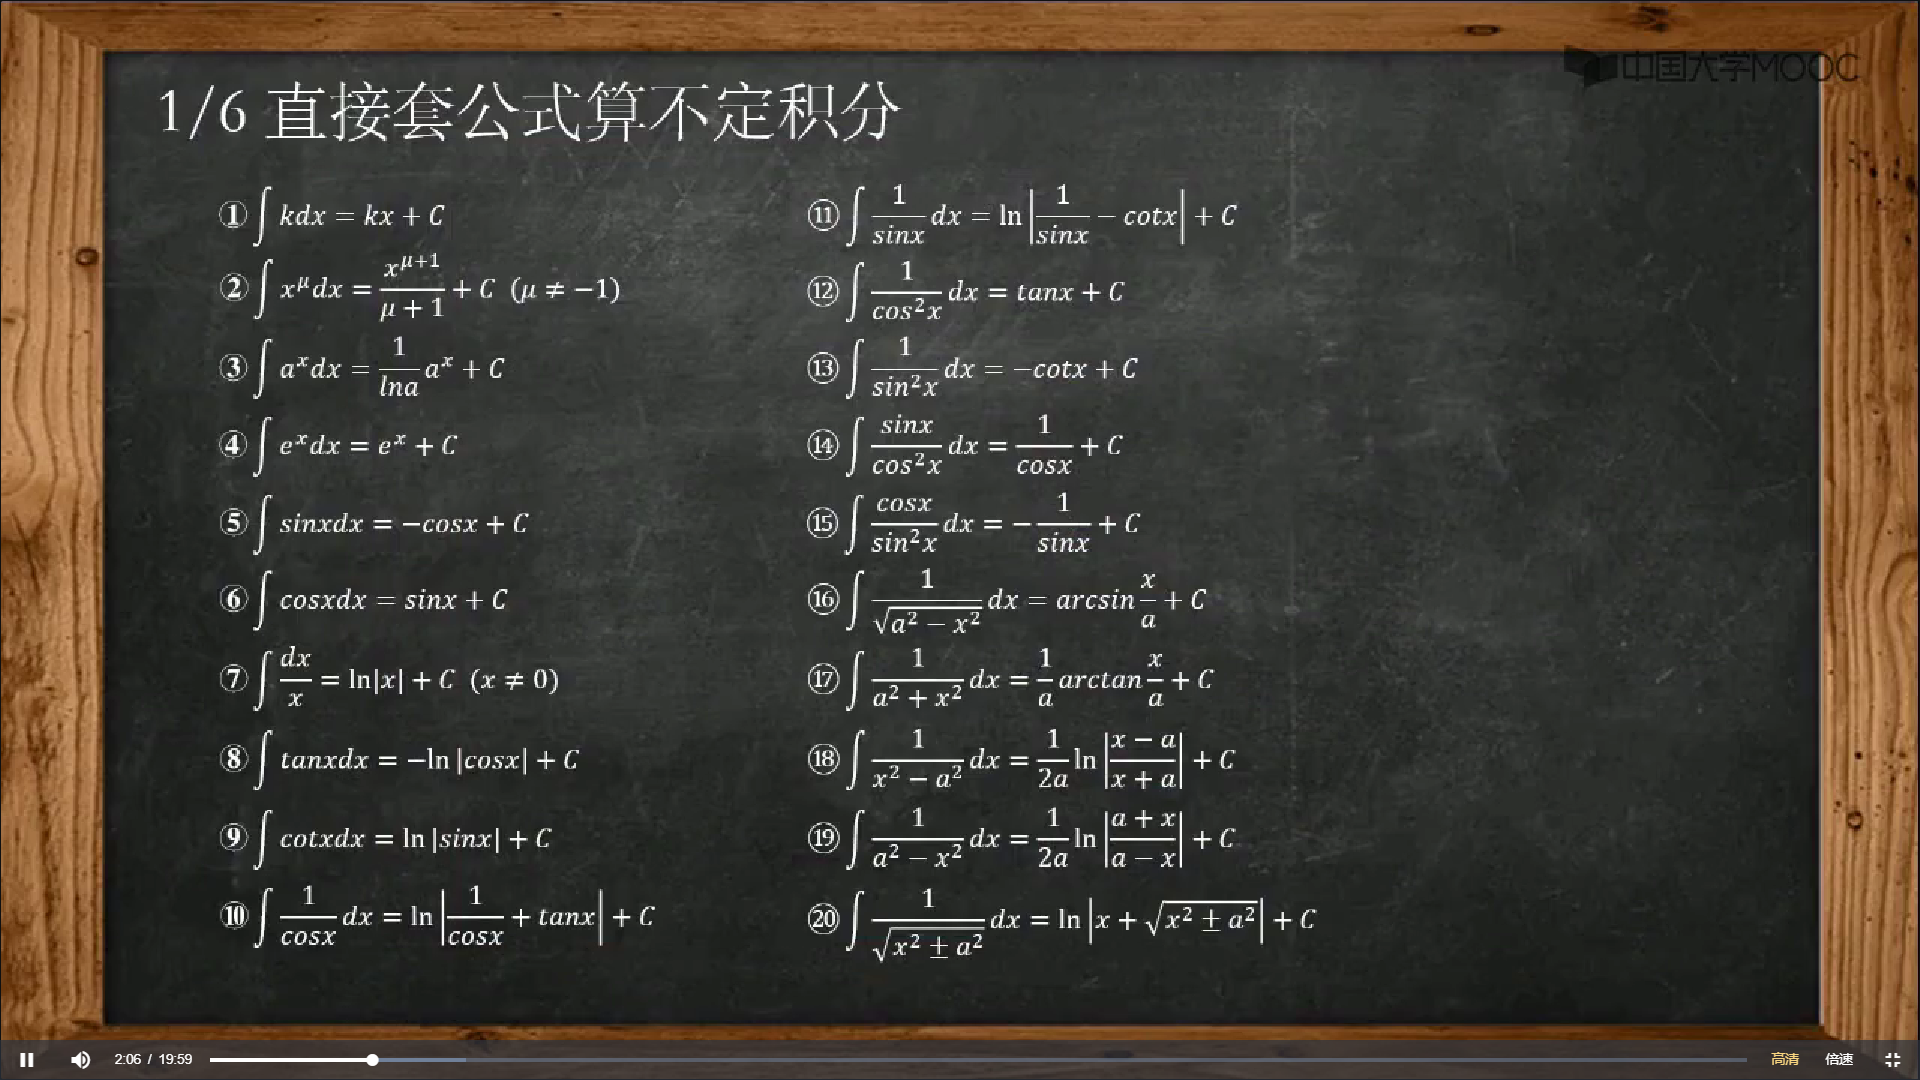 中国大学MOOC
1/6 直接套公式算不定积分
① ∫ kdx = kx + C
② ∫ x^μ dx = x^(μ+1)/(μ + 1) + C (μ ≠ −1)
③ ∫ a^x dx = 1/lna a^x + C
④ ∫ e^x dx = e^x + C
⑤ ∫ sinxdx = −cosx + C
⑥ ∫ cosxdx = sinx + C
⑦ ∫ dx/x = ln|x| + C (x ≠ 0)
⑧ ∫ tanxdx = −ln |cosx| + C
⑨ ∫ cotxdx = ln |sinx| + C
⑩ ∫ 1/cosx dx = ln |1/cosx + tanx| + C
⑪ ∫ 1/sinx dx = ln |1/sinx − cotx| + C
⑫ ∫ 1/cos²x dx = tanx + C
⑬ ∫ 1/sin²x dx = −cotx + C
⑭ ∫ sinx/cos²x dx = 1/cosx + C
⑮ ∫ cosx/sin²x dx = − 1/sinx + C
⑯ ∫ 1/√(a² − x²) dx = arcsin x/a + C
⑰ ∫ 1/(a² + x²) dx = 1/a arctan x/a + C
⑱ ∫ 1/(x² − a²) dx = 1/2a ln |(x − a)/(x + a)| + C
⑲ ∫ 1/(a² − x²) dx = 1/2a ln |(a + x)/(a − x)| + C
⑳ ∫ 1/√(x² ± a²) dx = ln |x + √(x² ± a²)| + C
2:06 / 19:59 高清 倍速